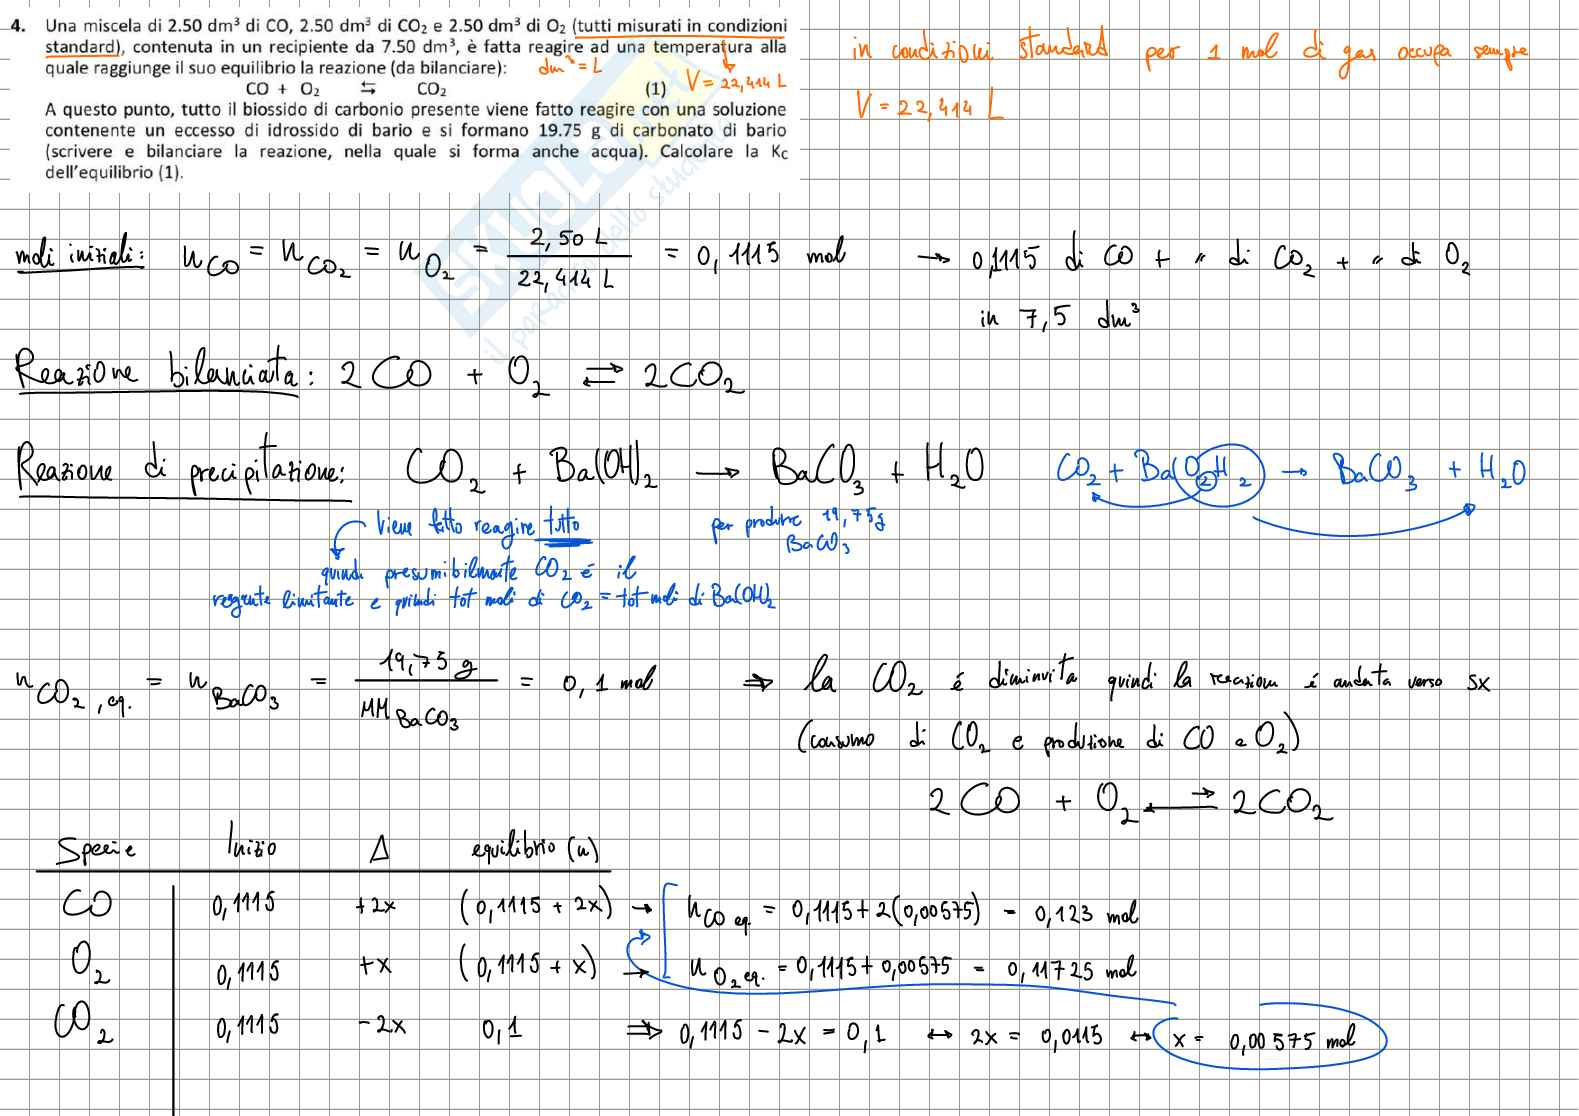 4. Una miscela di 2.50 dm³ di CO, 2.50 dm³ di CO₂ e 2.50 dm³ di O₂ (tutti misurati in condizioni
standard), contenuta in un recipiente da 7.50 dm³, è fatta reagire ad una temperatura alla
quale raggiunge il suo equilibrio la reazione (da bilanciare):
dm³ = L
V = 22,414 L
CO + O₂ ⇆ CO₂ (1)
A questo punto, tutto il biossido di carbonio presente viene fatto reagire con una soluzione
contenente un eccesso di idrossido di bario e si formano 19.75 g di carbonato di bario
(scrivere e bilanciare la reazione, nella quale si forma anche acqua). Calcolare la K_C
dell'equilibrio (1).
in condizioni standard per 1 mol di gas occupa sempre
V = 22,414 L
moli iniziali: n CO = n CO₂ = n O₂ = 2,50 L / 22,414 L = 0,1115 mol → 0,1115 di CO + " di CO₂ + " di O₂
in 7,5 dm³
Reazione bilanciata: 2CO + O₂ ⇄ 2CO₂
Reazione di precipitazione: CO₂ + Ba(OH)₂ → BaCO₃ + H₂O
CO₂ + Ba(O₂H₂) → BaCO₃ + H₂O
viene fatto reagire tutto
per produrre 19,75g
BaCO₃
quindi presumibilmente CO₂ é il
reagente limitante e quindi tot moli di CO₂ = tot moli di Ba(OH)₂
n CO₂, eq. = n BaCO₃ = 19,75 g / MM BaCO₃ = 0,1 mol ⇒ la CO₂ é diminuita quindi la reazione é andata verso sx
(consumo di CO₂ e produzione di CO e O₂)
2CO + O₂ ⇄ 2CO₂
Specie Inizio Δ equilibrio (n)
CO 0,1115 +2x (0,1115 + 2x) → n CO eq. = 0,1115 + 2(0,00575) = 0,123 mol
O₂ 0,1115 +x (0,1115 + x) → n O₂ eq. = 0,1115 + 0,00575 = 0,11725 mol
CO₂ 0,1115 -2x 0,1 ⇒ 0,1115 - 2x = 0,1 ↔ 2x = 0,0115 ↔ x = 0,00575 mol